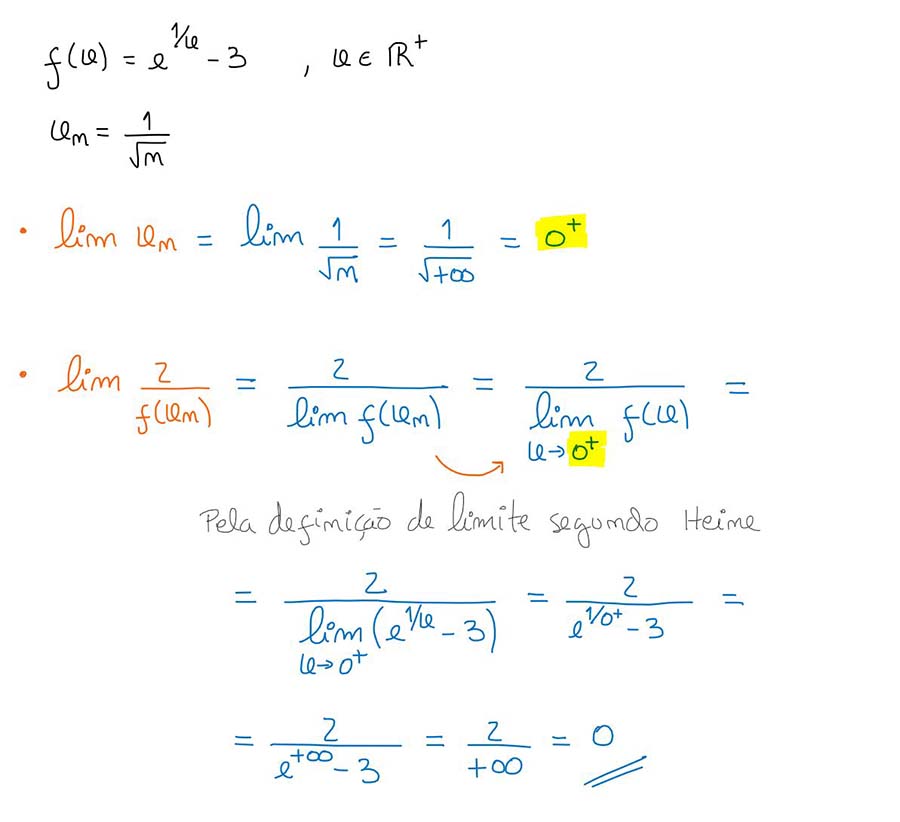 f(x) = e^{1/x} - 3 , x ∈ ℝ⁺
x_n = 1/√n
• lim x_n = lim 1/√n = 1/√+∞ = 0⁺
• lim 2/f(x_n) = 2/(lim f(x_n)) = 2/(lim_{x→0⁺} f(x)) =
Pela definição de limite segundo Heine
= 2/(lim_{x→0⁺} (e^{1/x} - 3)) = 2/(e^{1/0⁺} - 3) =
= 2/(e^{+∞} - 3) = 2/+∞ = 0